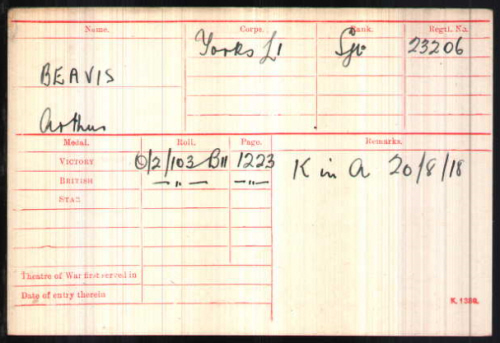 Name. Corps. Rank. Regtl. No.
Yorks LI Sjt 23206
BEAVIS
Arthur
Medal. Roll. Page. Remarks.
VICTORY O/2/103 B11 1223 K in A 20/8/18
BRITISH —„— —„—
STAR
Theatre of War first served in
Date of entry therein
K. 1380.